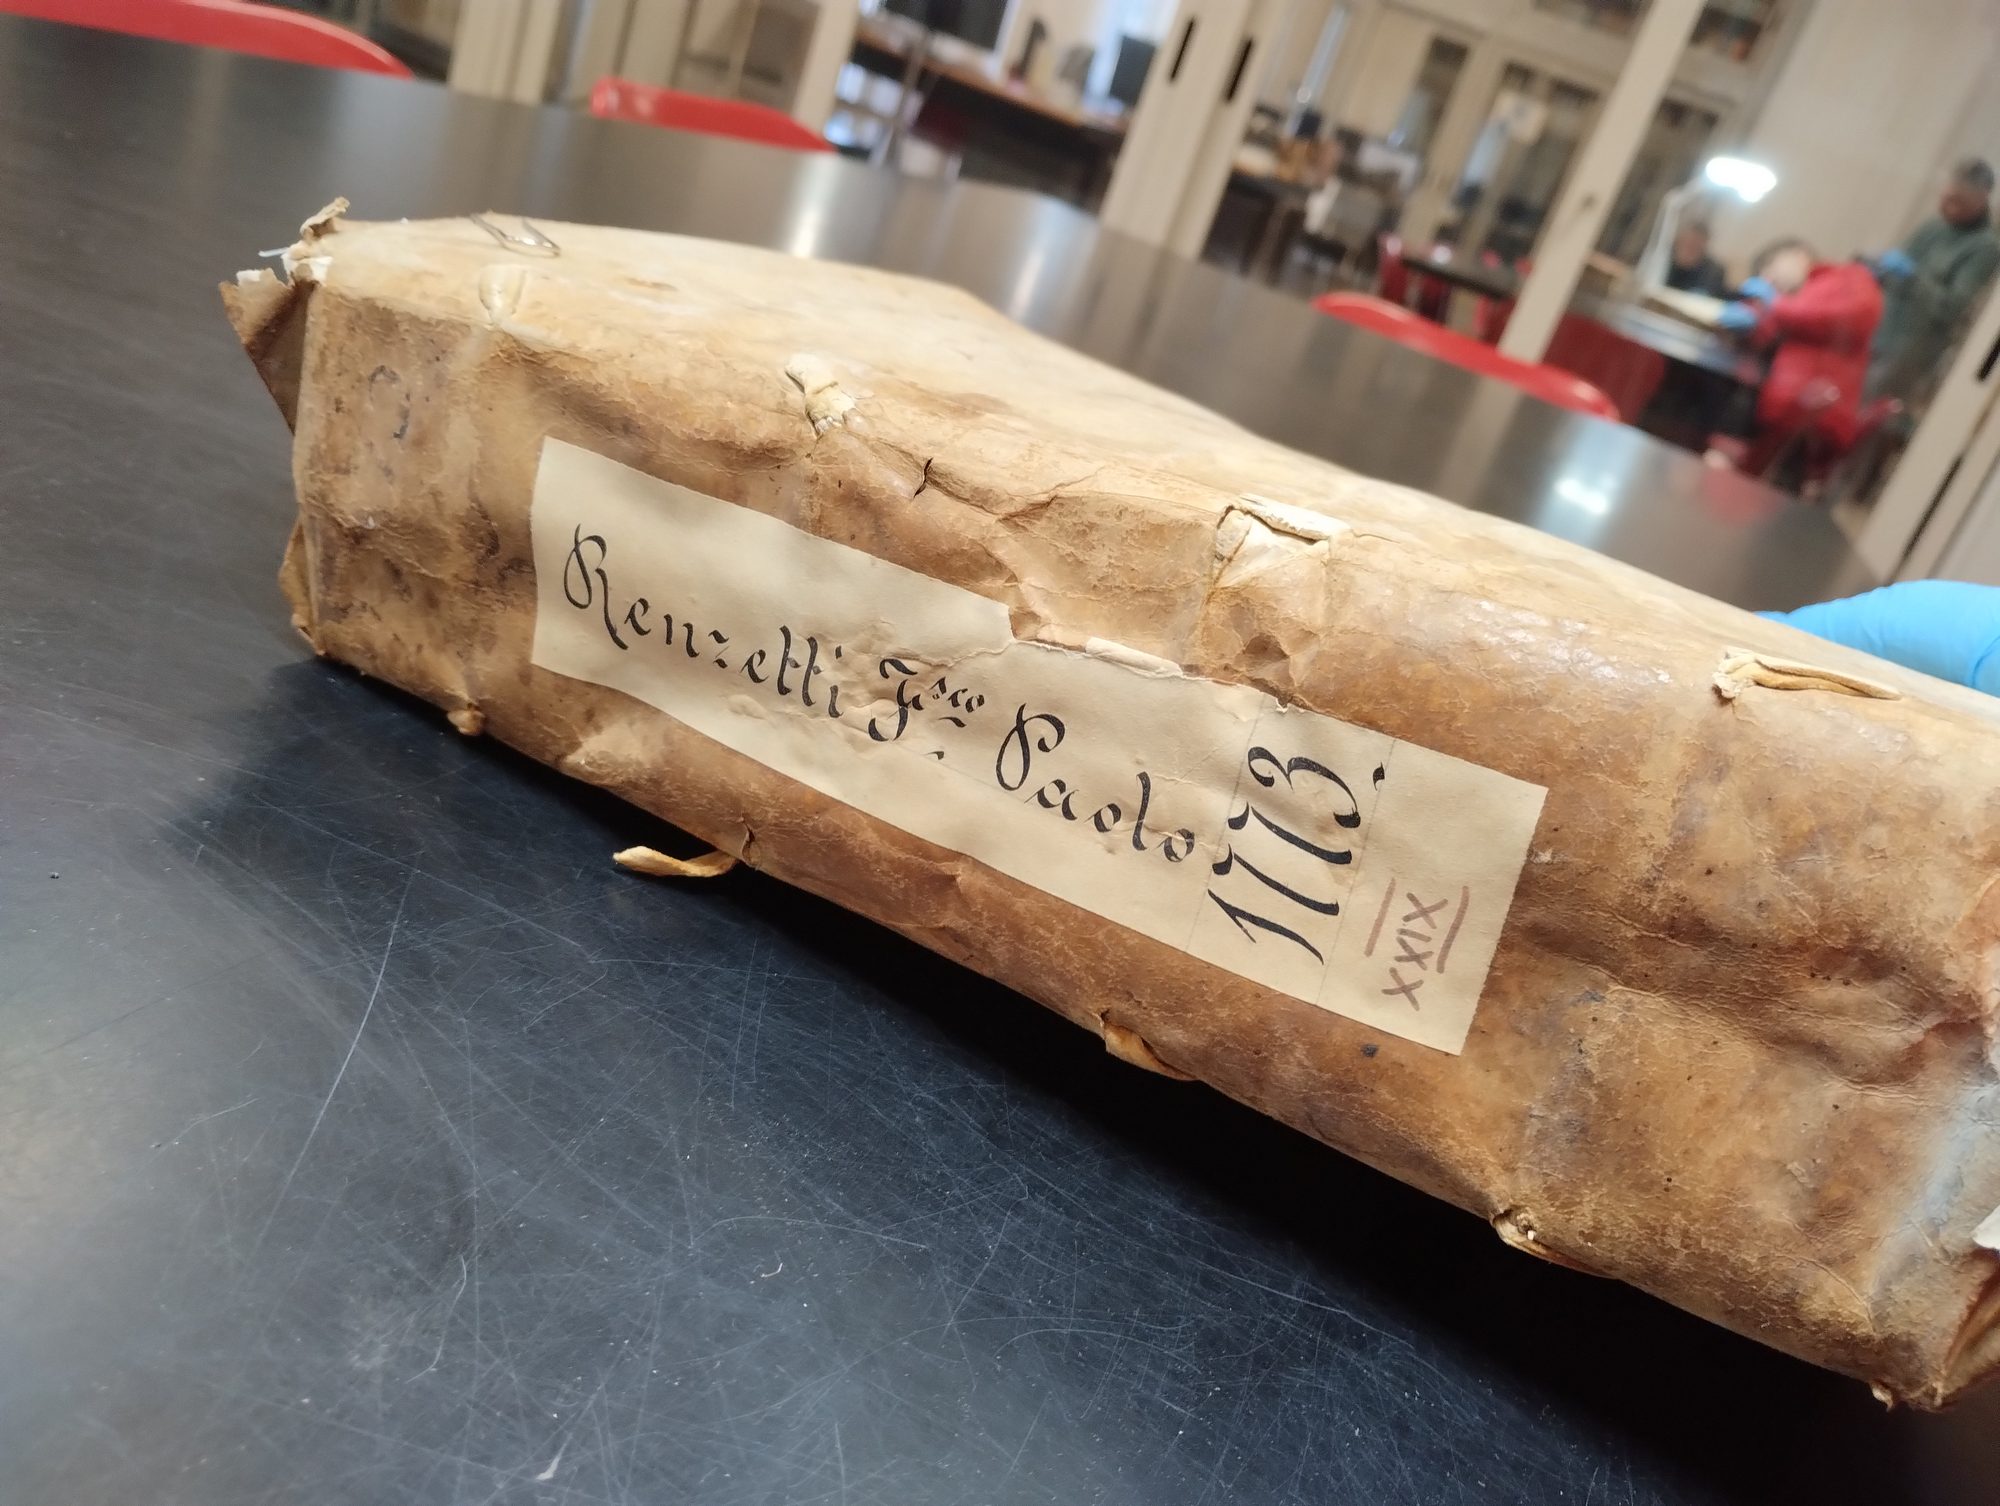 Renzetti Fsco Paolo
1773.
XXIX